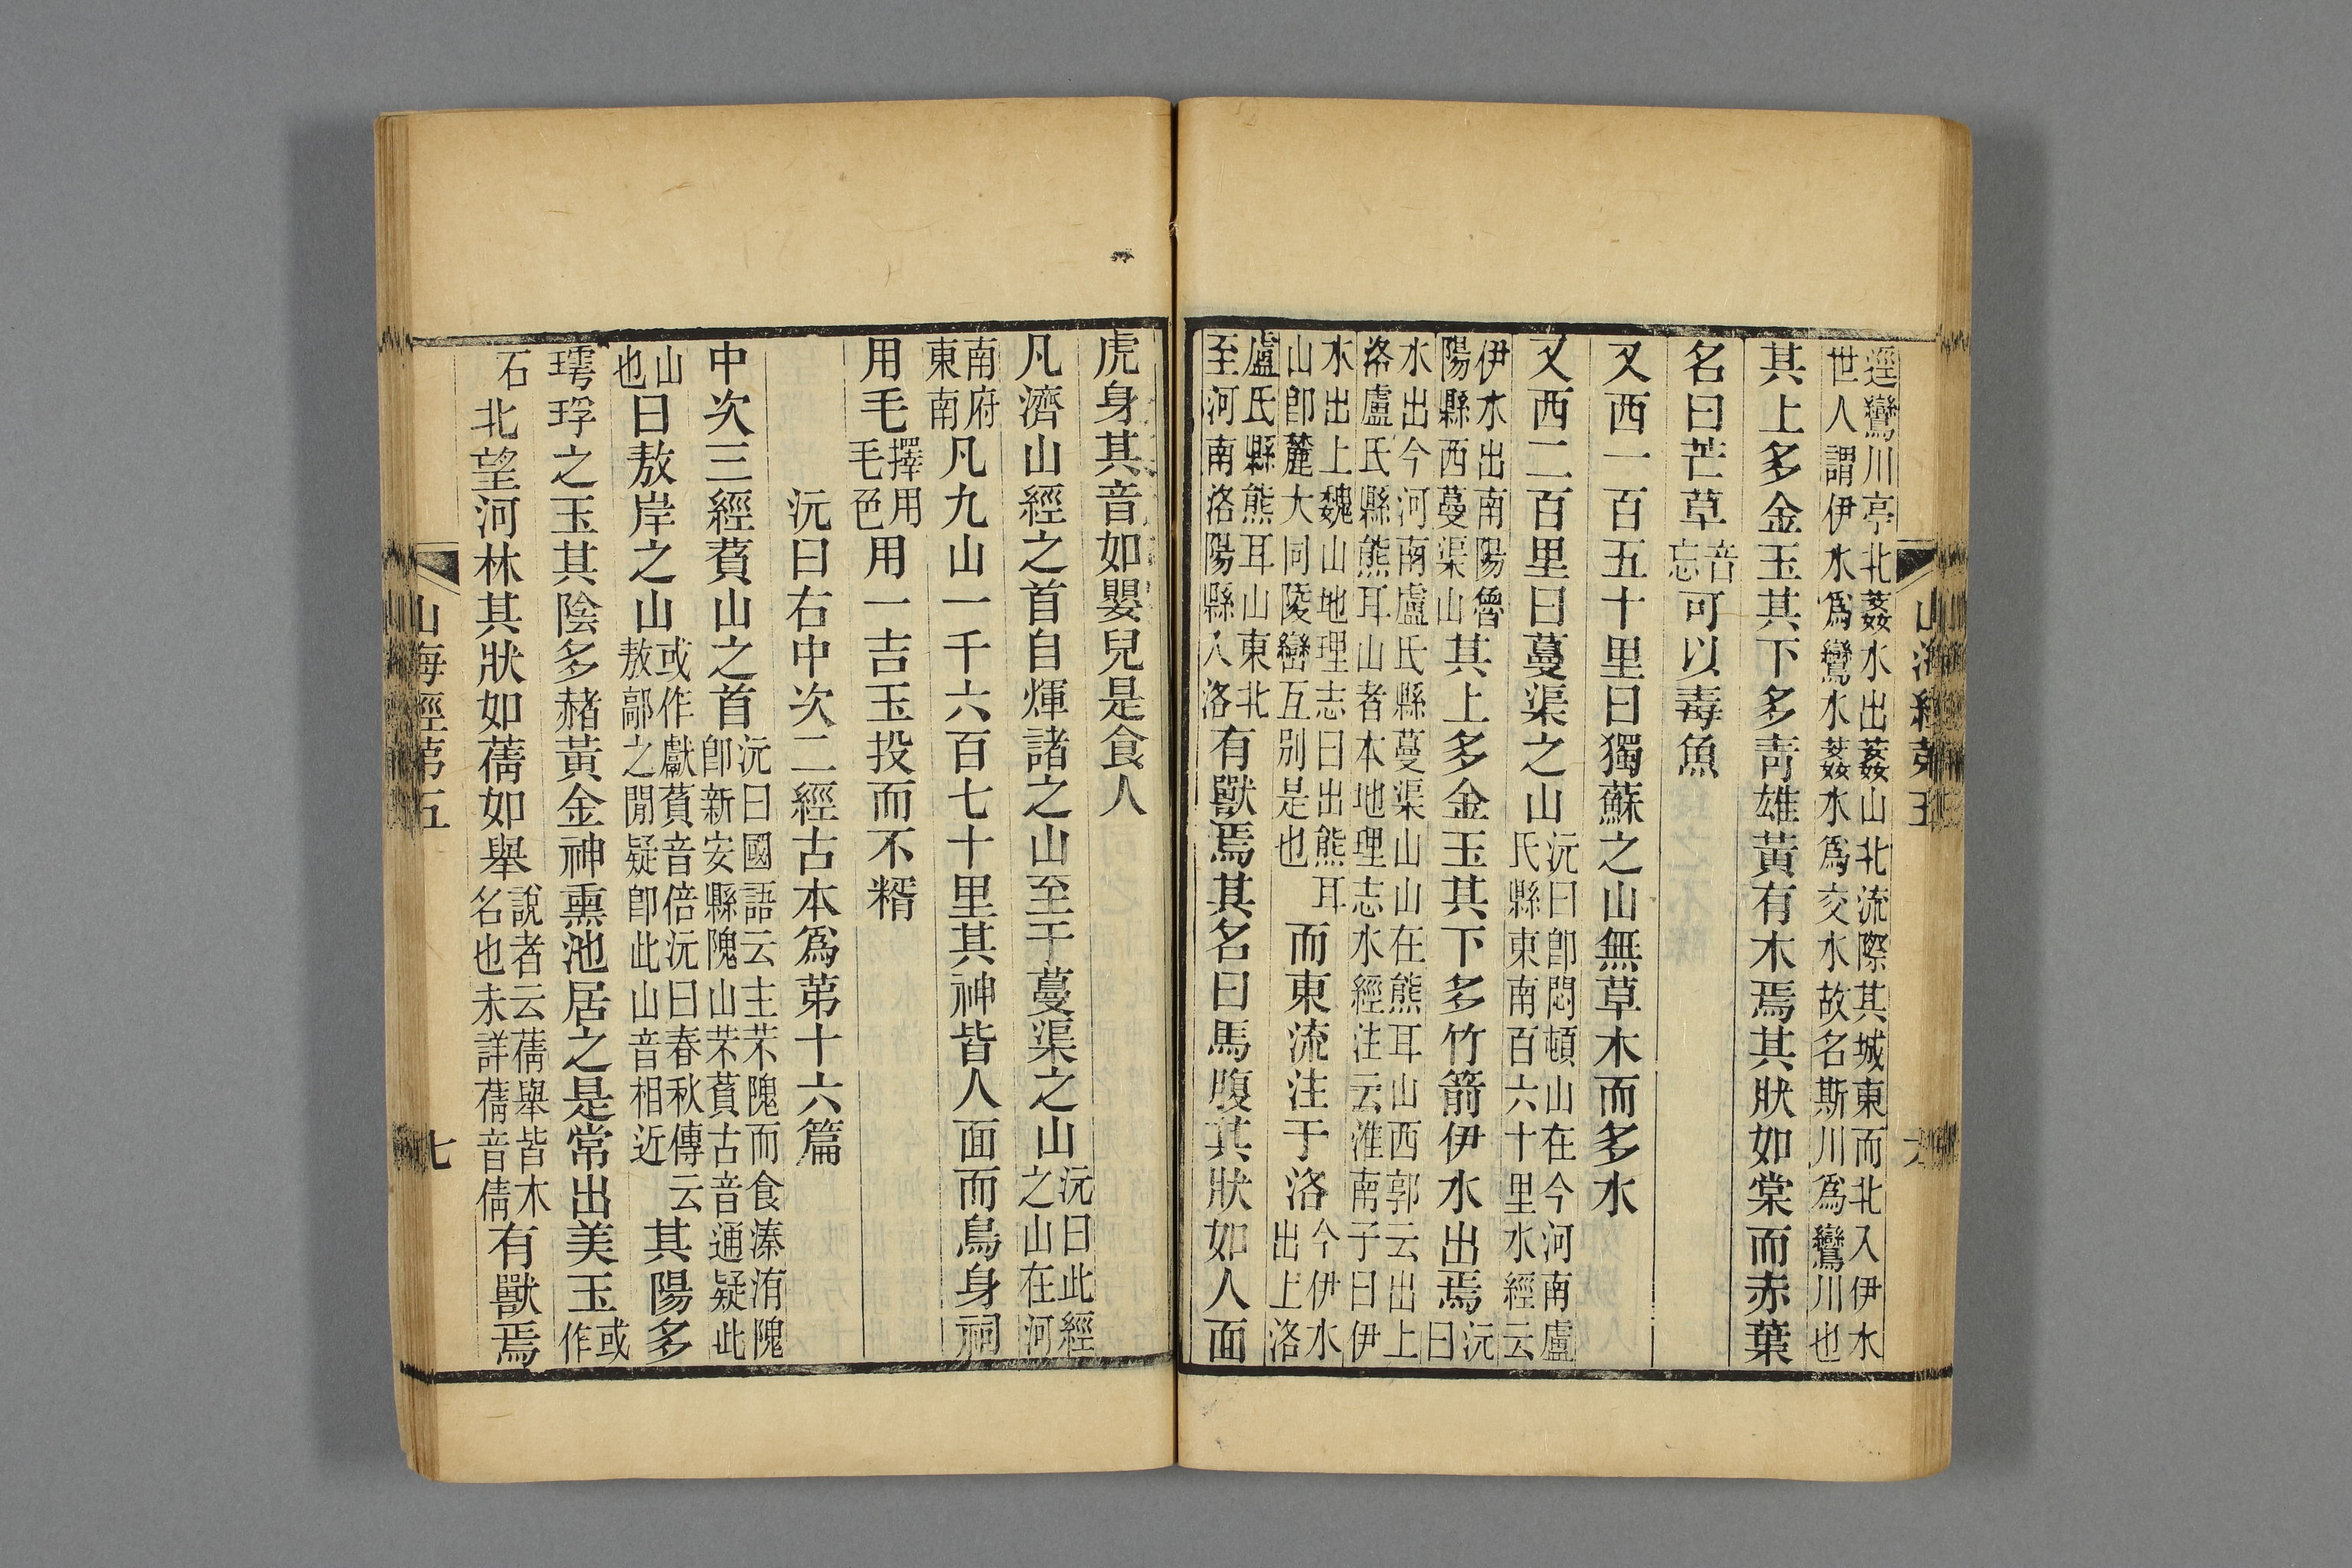 山海經弟五　六
逕鸞川亭北葌水出葌山北流際其城東而北入伊水
世人謂伊水爲鸞水葌水爲交水故名斯川爲鸞川也
其上多金玉其下多靑雄黃有木焉其狀如棠而赤葉
名曰芒草音忘可以毒魚
又西一百五十里曰獨蘇之山無草木而多水
又西二百里曰蔓渠之山沅曰卽悶頓山在今河南盧氏縣東南百六十里水經云
伊水出南陽魯陽縣西蔓渠山其上多金玉其下多竹箭伊水出焉沅曰
水出今河南盧氏縣蔓渠山山在熊耳山西郭云出上
洛盧氏縣熊耳山者本地理志水經注云淮南子曰伊
水出上魏山地理志曰出熊耳山卽麓大同陵巒互別是也而東流注于洛今伊水出上洛
盧氏縣熊耳山東北至河南洛陽縣入洛有獸焉其名曰馬腹其狀如人面
虎身其音如嬰兒是食人
凡濟山經之首自煇諸之山至于蔓渠之山沅曰此經之山在河
南府東南凡九山一千六百七十里其神皆人面而鳥身祠
用毛擇用毛色用一吉玉投而不糈
沅曰右中次二經古本爲苐十六篇
中次三經萯山之首沅曰國語云主芣隗而食溱洧隗卽新安縣隗山芣萯古音通疑此
山也曰敖岸之山或作獻萯音倍沅曰春秋傳云敖鄗之閒疑卽此山音相近其陽多
㻬琈之玉其陰多赭黃金神熏池居之是常出美玉或作
石北望河林其狀如蒨如舉說者云蒨舉皆木名也未詳蒨音倩有獸焉
山海經苐五　七